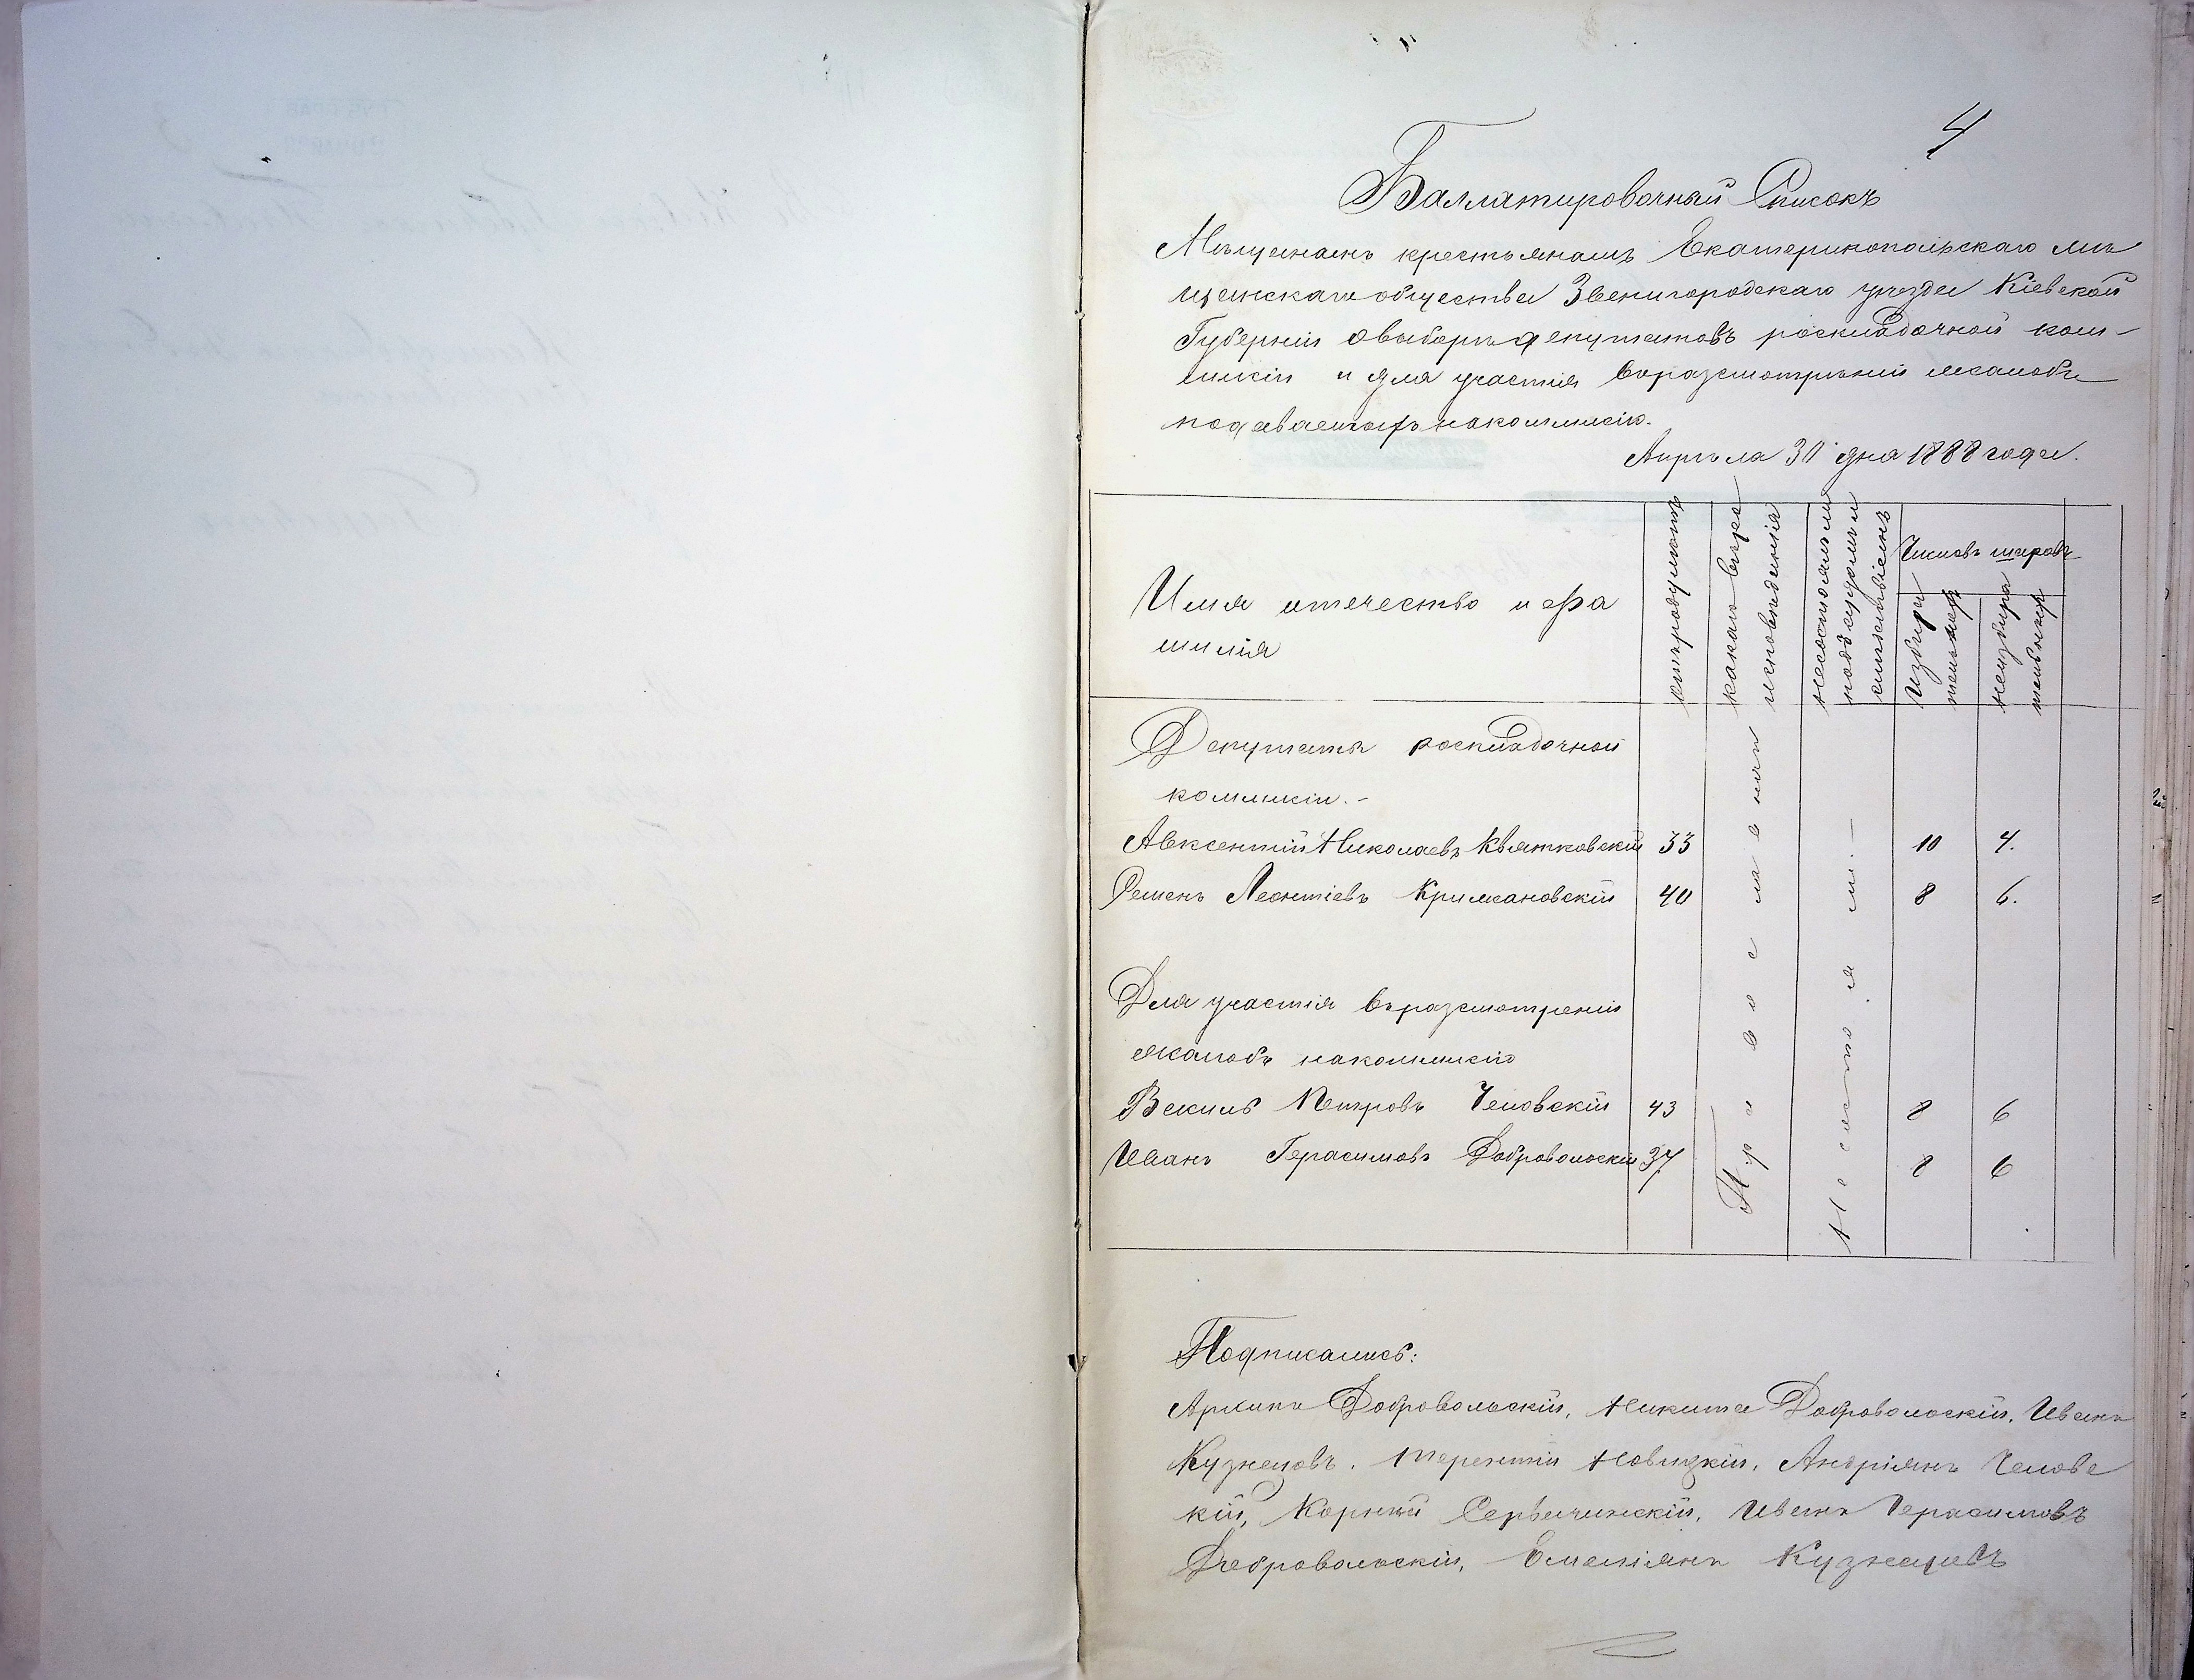 4
Баллатировочный Списокъ
Мѣщанамъ крестьянамъ Екатеринопольскаго мѣ
щанскаго общества Звенигородскаго уѣзда Кіевской
Губерніи о выборѣ депутатовъ роскладочной ком-
мисіи и для участія въ разсмотрѣніи жалобъ
подаваемыхъ на коммисію.
Апрѣля 30 дня 1888 года.
Имя отечество и фа
милія
отъ роду лѣтъ
какаго вѣро
исповѣданія
не состоялъ ли
подъ судомъ и
слѣдствіемъ
Числовъ шаровъ
Избира
тельныхъ
неизбира
тельныхъ
Депутата роскладочной
коммисіи.-
Авксентий Николаевъ Квятковскій 33 10 4.
Семенъ Леонтіевъ Крижановскій 40 8 6.
Для участія въ разсмотреніи
жалобъ на коммисію
Василь Петровъ Человскій 43 8 6
Иванъ Герасимовъ Добровольскій 37 8 6
Православнаго
Не состоялъ.-
Подписались:
Архипъ Добровольскій, Никита Добровольскій, Иванъ
Кузнецовъ. Терентій Новицкій, Андріянъ Челове
кій, Корней Сервичинскій, Иванъ Герасимовъ
Добровольскій, Емеліянъ Кузнецовъ